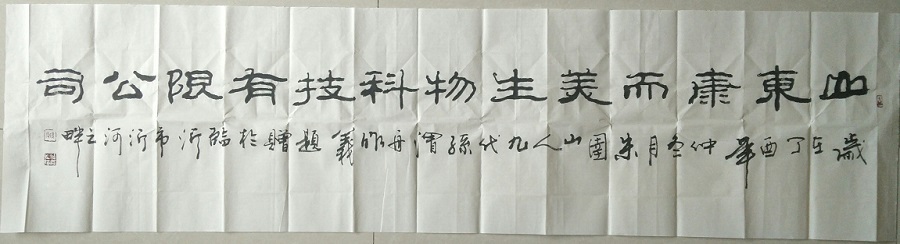 山東康而美生物科技有限公司
歲在丁酉年仲冬月朱圍山人九代孫渭舟義題贈於臨沂市沂河之畔